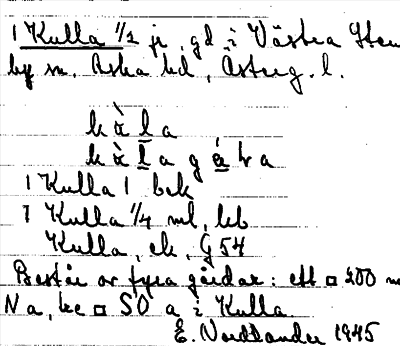 1 Kulla 1/2 je, gd i Västra Sten
by sn. Aska hd, Österg. l.
kà̤la
kà̤laga̤ra
1 Kulla 1 bek
1 Kulla 1/4 ml, kb
Kulla, ek, G 54
Består av fyra gårdar: ett □ 200 m
N a, ke □ SO a i Kulla
E. Nordlander 1945